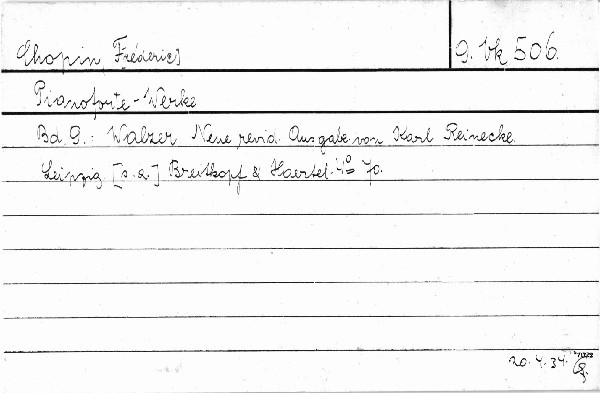 Chopin, Fréderic] 9. Vk 506.
Pianoforte-Werke
Bd. 9.: Walzer Neue revid. Ausgabe von Karl Reinecke.
Leipzig [s.a.] Breitkopf & Haertel. 4°
20.4.34.